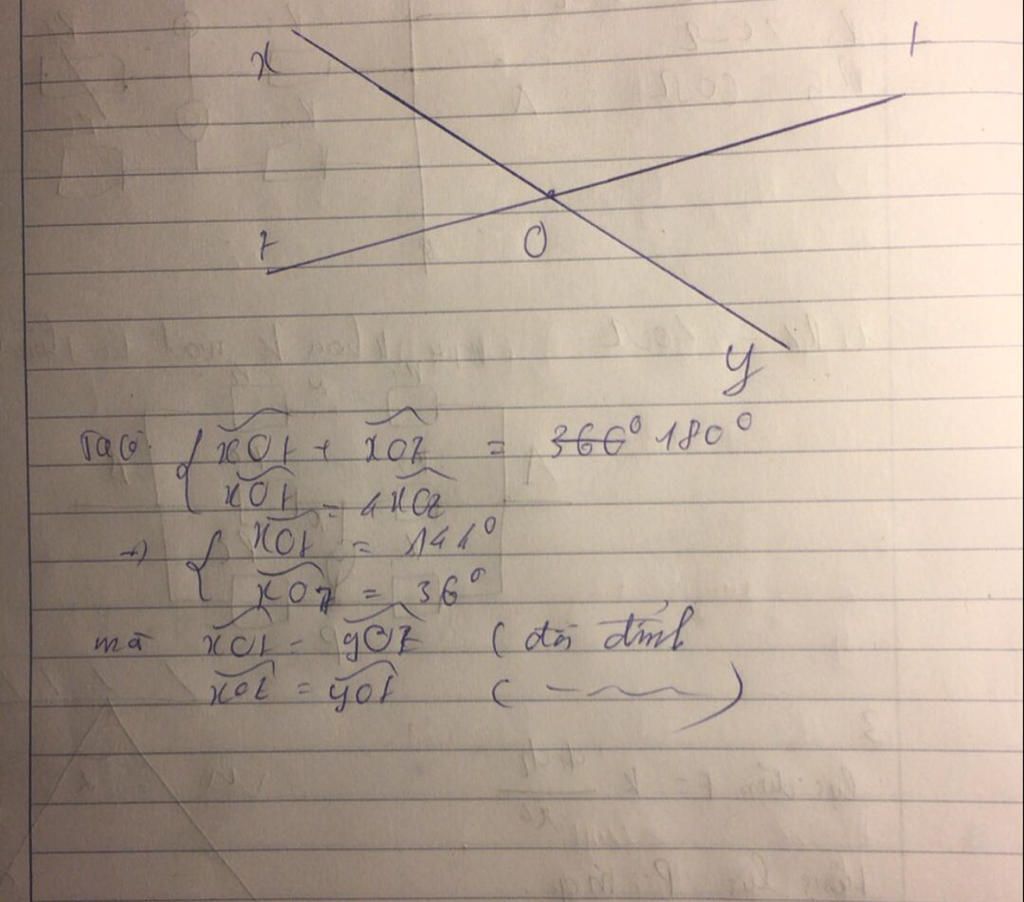 x
t
z
O
y
Ta có { xOt + xOz = 360° 180°
xOt = 4xOz
→ { xOt = 144°
xOz = 36°
mà xOt = yOz ( đối đỉnh
xOz = yOt ( )